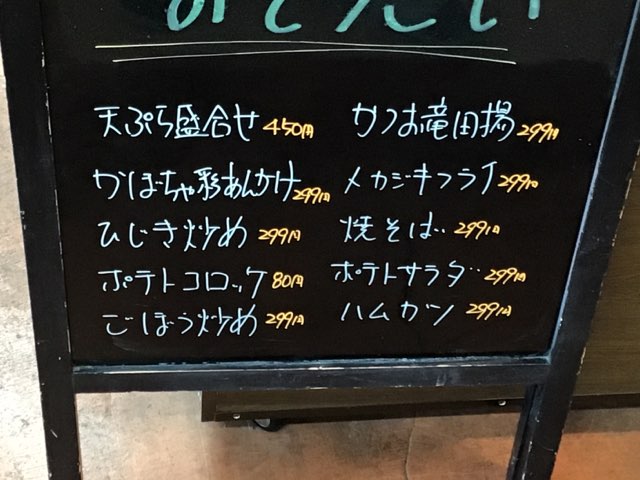 おそうざい
天ぷら盛合せ 450円
かぼちゃ彩あんかけ 299円
ひじき炒め 299円
ポテトコロッケ 80円
ごぼう炒め 299円
かつお竜田揚 299円
メカジキフライ 299円
焼そば 299円
ポテトサラダ 299円
ハムカツ 299円